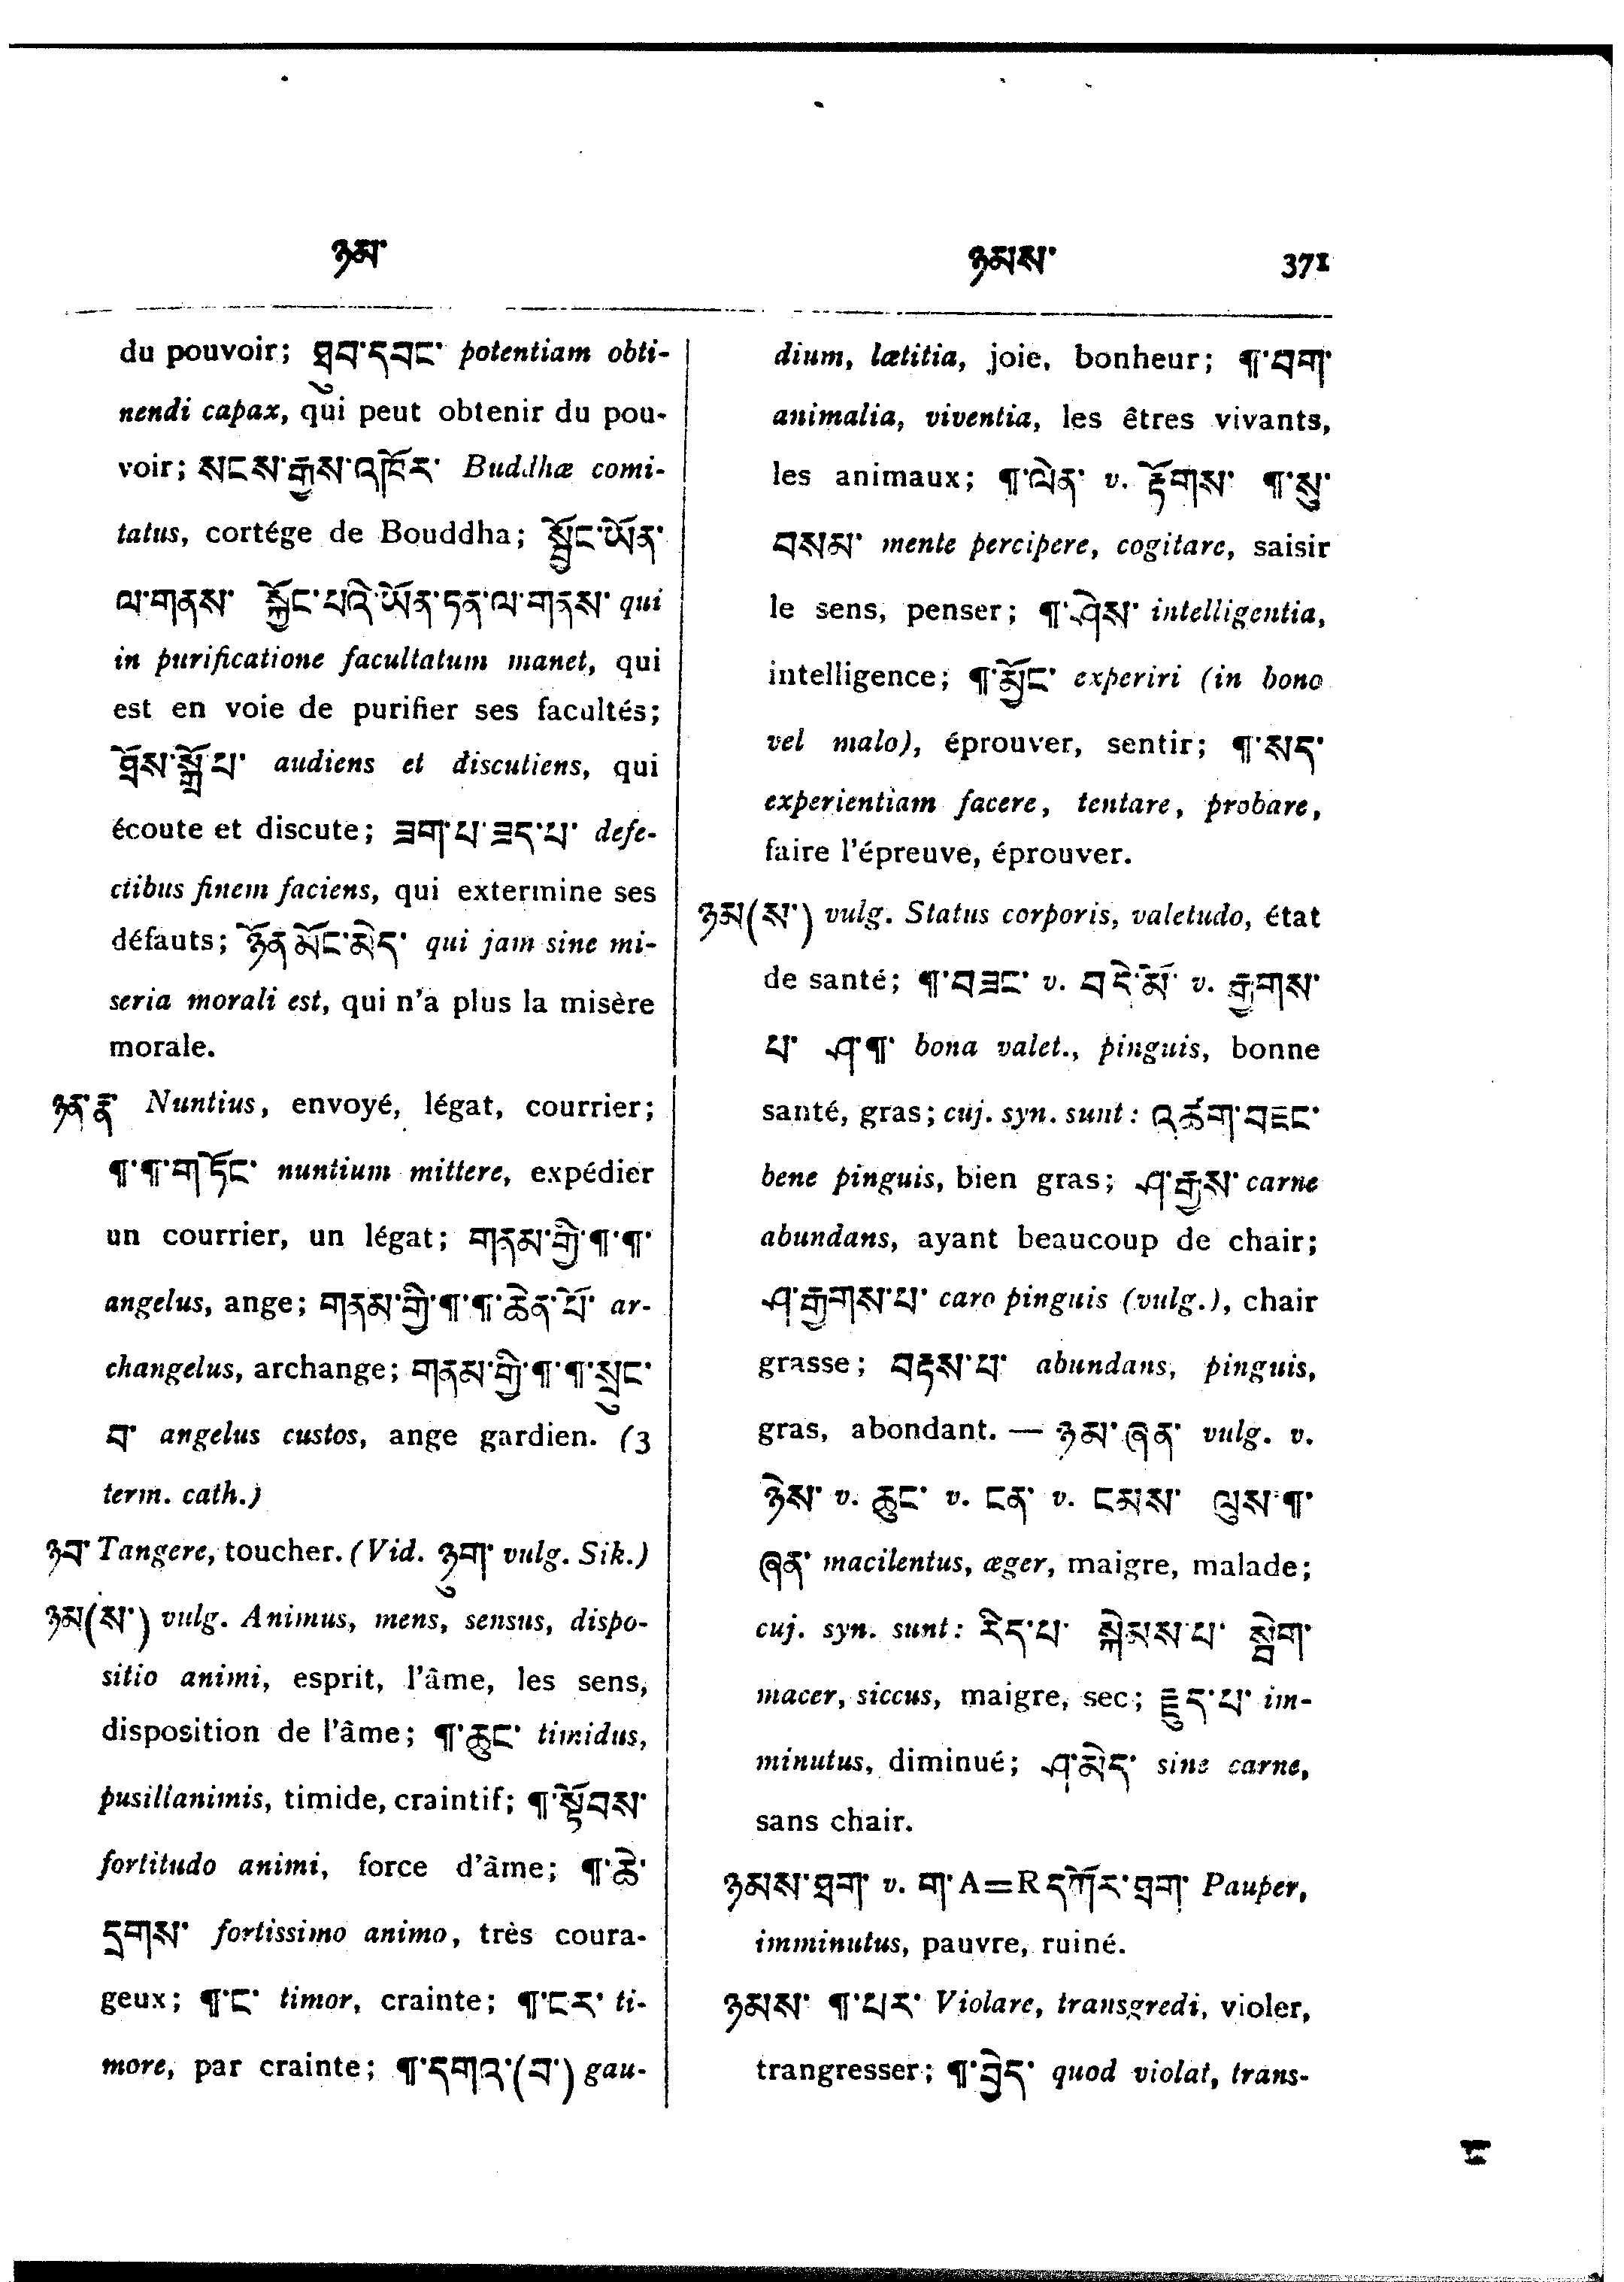 ཉམ་
ཉམས་ 371
du pouvoir; ཐུབ་དབང་ potentiam obti-
nendi capax, qui peut obtenir du pou-
voir; སངས་རྒྱས་འཁོར་ Buddhæ comi-
tatus, cortége de Bouddha; སྦྱོང་ཡོན་
ལ་གནས་ སྐྱོང་པའི་ཡོན་ཏན་ལ་གནས་ qui
in purificatione facultatum manet, qui
est en voie de purifier ses facultés;
ཐོས་སྒྲོ་པ་ audiens et discutiens, qui
écoute et discute; ཟག་པ་ཟད་པ་ defe-
ctibus finem faciens, qui extermine ses
défauts; ཉོན་མོང་མེད་ qui jam sine mi-
seria morali est, qui n'a plus la misère
morale.
ཉན་ Nuntius, envoyé, légat, courrier;
¶་¶་གཏོང་ nuntium mittere, expédier
un courrier, un légat; གནམ་གྱི་¶་¶་
angelus, ange; གནམ་གྱི་¶་¶་ཆེན་པོ་ ar-
changelus, archange; གནམ་གྱི་¶་¶་སྲུང་
བ་ angelus custos, ange gardien. (3
term. cath.)
ཉབ་ Tangere, toucher. (Vid. ཉུག་ vulg. Sik.)
ཉམ(ས་) vulg. Animus, mens, sensus, dispo-
sitio animi, esprit, l'âme, les sens,
disposition de l'âme; ¶་ཆུང་ timidus,
pusillanimis, timide, craintif; ¶་སྟོབས་
fortitudo animi, force d'âme; ¶་ཆེ་
དྲགས་ fortissimo animo, très coura-
geux; ¶་ང་ timor, crainte; ¶་ངར་ ti-
more, par crainte; ¶་དགའ་(བ་) gau-
dium, lætitia, joie, bonheur; ¶་བག་
animalia, viventia, les êtres vivants,
les animaux; ¶་ལེན་ v. རྟོགས་ ¶་སུ་
བསམ་ mente percipere, cogitare, saisir
le sens, penser; ¶་ཤེས་ intelligentia,
intelligence; ¶་མྱོང་ experiri (in bono
vel malo), éprouver, sentir; ¶་སད་
experientiam facere, tentare, probare,
faire l'épreuve, éprouver.
ཉམ(ས་) vulg. Status corporis, valetudo, état
de santé; ¶་བཟང་ v. བདེ་མོ་ v. རྒྱགས་
པ་ ཤ་¶་ bona valet., pinguis, bonne
santé, gras; cuj. syn. sunt: འཚག་བཟང་
bene pinguis, bien gras; ཤ་རྒྱས་ carne
abundans, ayant beaucoup de chair;
ཤ་རྒྱགས་པ་ caro pinguis (vulg.), chair
grasse; བརྟས་པ་ abundans, pinguis,
gras, abondant. — ཉམ་ཞན་ vulg. v.
ཉེས་ v. ཆུང་ v. ངན་ v. ངམས་ ལུས་¶་
ཞན་ macilentus, æger, maigre, malade;
cuj. syn. sunt: རིད་པ་ སྐེམས་པ་ སྲེག་
macer, siccus, maigre, sec; ཇུད་པ་ im-
minutus, diminué; ཤ་མེད་ sine carne,
sans chair.
ཉམས་ཐག་ v. ག་ A=R དཀོར་ཐག་ Pauper,
imminutus, pauvre, ruiné.
ཉམས་ ¶་པར་ Violare, transgredi, violer,
trangresser; ¶་བྱེད་ quod violat, trans-